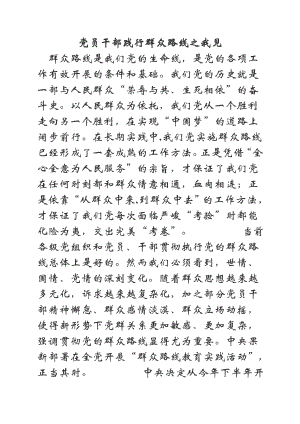 党员干部践行群众路线之我见
群众路线是我们党的生命线，是党的各项工
作有效开展的条件和基础。我们党的历史就是
一部与人民群众“荣辱与共、生死相依”的奋
斗史。以人民群众为依托，我们党从一个胜利
走向另一个胜利，在实现“中国梦”的道路上
阔步前行。在长期实践中，我们党实施群众路线
已经形成了一套成熟的工作方法。正是凭借“全
心全意为人民服务”的宗旨，才保证了我们党
在任何时刻都和群众情意相通，血肉相连；正
是依靠“从群众中来，到群众中去”的工作方法，
才保证了我们党每次面临严峻“考验”时都能
化险为夷，交出完美“考卷”。 当前
各级党组织和党员、干部贯彻执行党的群众路
线总体上是好的。然而我们必须看到，世情、
国情、党情的深刻变化。随着群众思想越来越
多元化，诉求越来越复杂化，加之部分党员干
部精神懈怠、群众感情淡漠、群众立场动摇，
使得新形势下党群关系更加敏感、更加复杂，
强调贯彻党的群众路线显得尤为重要。中央果
断部署在全党开展“群众路线教育实践活动”，
正当其时。 中央决定从今年下半年开